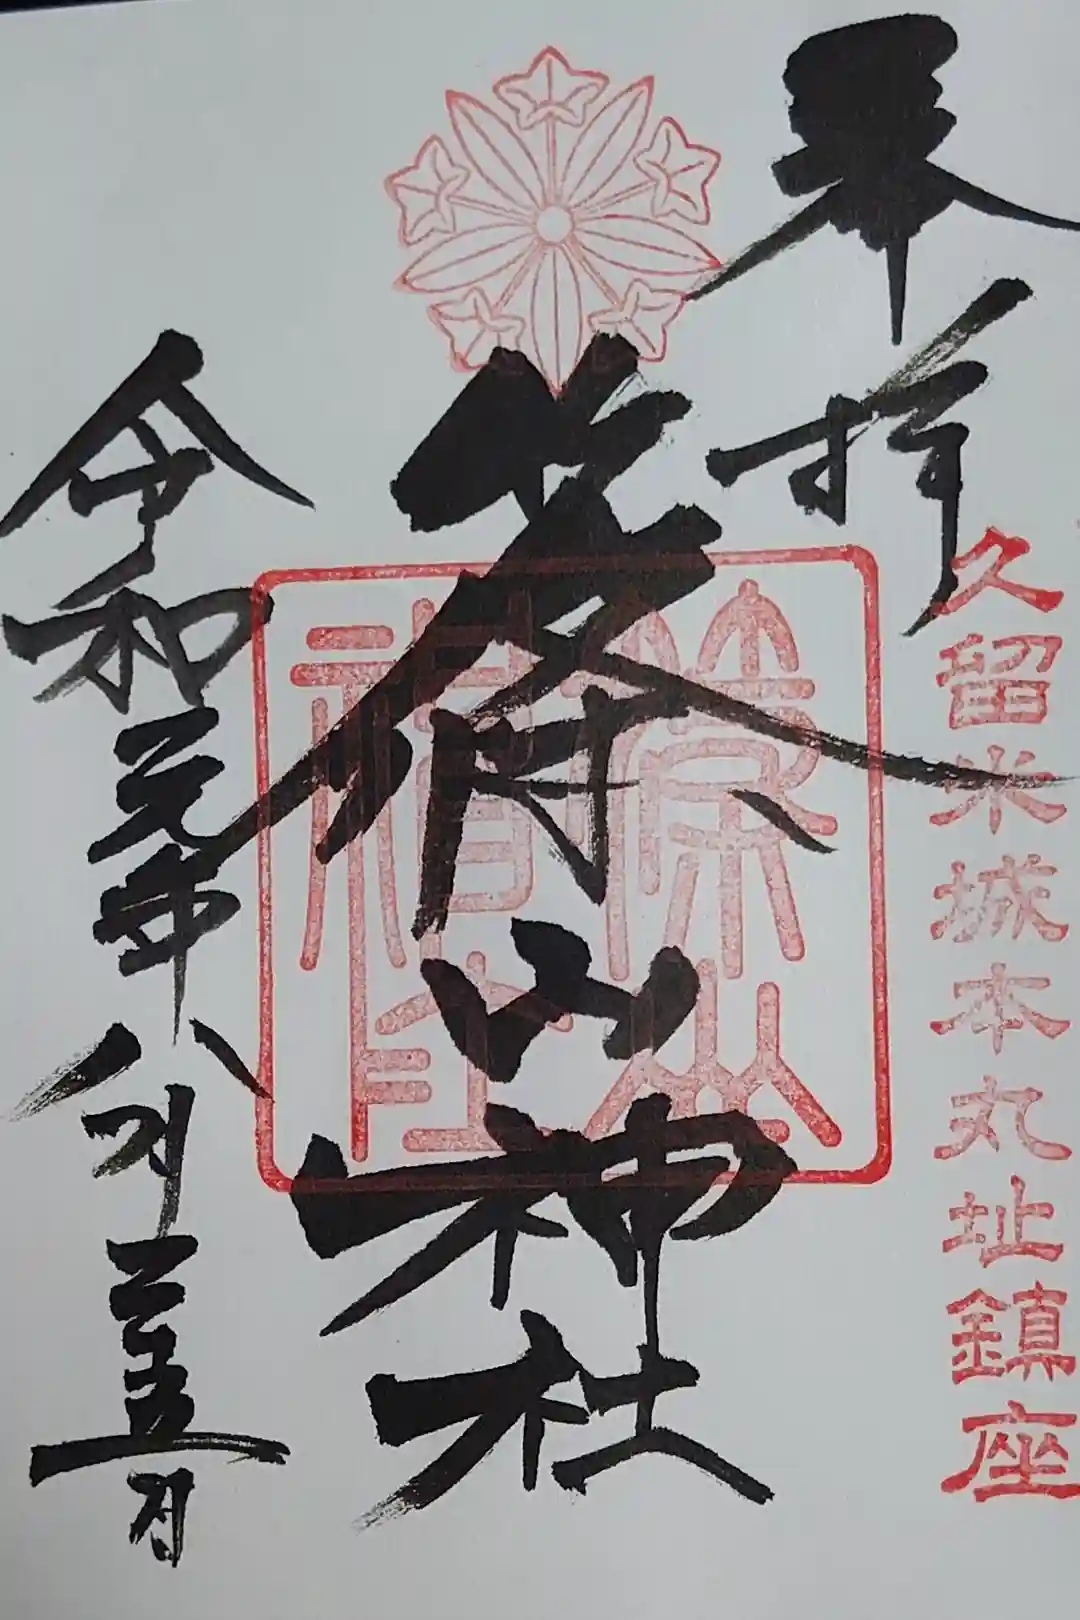 奉拝
久留米城本丸址鎮座
篠山神社
篠山
神社
令和元年八月二五日